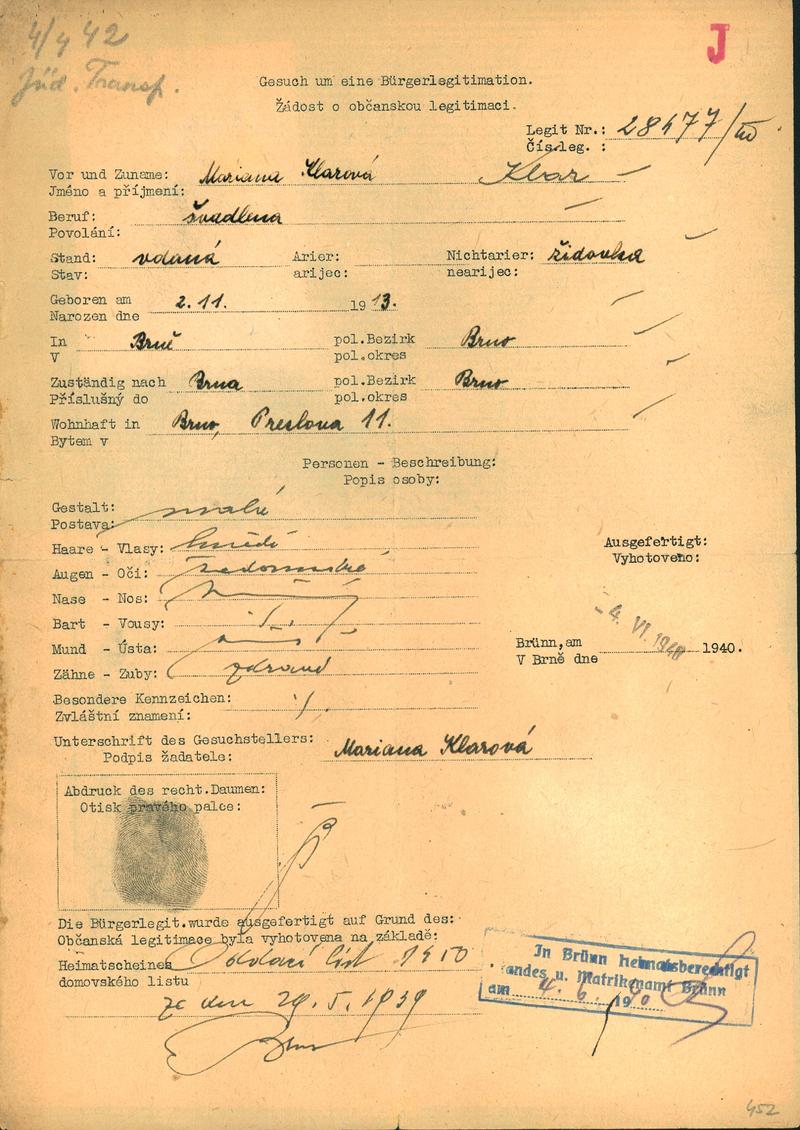 4/4 42
J
Jüd. Transp.
Gesuch um eine Bürgerlegitimation.
Žádost o občanskou legitimaci.
Legit Nr.: 28477/
Čís.leg. :
Vor und Zuname: Mariana Klarová Klar
Jméno a příjmení:
Beruf: švadlena
Povolání:
Stand: vdaná Arier: Nichtarier: židovka
Stav: arijec: nearijec:
Geboren am 2. 11. 1913.
Narozen dne
In Brně pol.Bezirk Brno
V pol.okres
Zuständig nach Brna pol.Bezirk Brno
Příslušný do pol.okres
Wohnhaft in Brno, Preslova 11.
Bytem v
Personen - Beschreibung:
Popis osoby:
Gestalt: malé
Postava:
Haare - Vlasy: hnědé
Augen - Oči:
Nase - Nos:
Bart - Vousy:
Mund - Ústa:
Zähne - Zuby: zdravé
Ausgefertigt:
Vyhotoveno:
Brünn, am - 4. VI. 1940 1940.
V Brně dne
Besondere Kennzeichen:
Zvláštní znamení:
Unterschrift des Gesuchstellers: Mariana Klarová
Podpis žadatele:
Abdruck des recht.Daumen:
Otisk pravého palce:
Die Bürgerlegit.wurde ausgefertigt auf Grund des:
Občanská legitimace byla vyhotovena na základě:
Heimatscheines Oddací list 1450
domovského listu
ze dne 29. 5. 1939
In Brünn heimatsberechtigt
andes u. Matrikenamt Brünn
am 4. 6. 1940
452